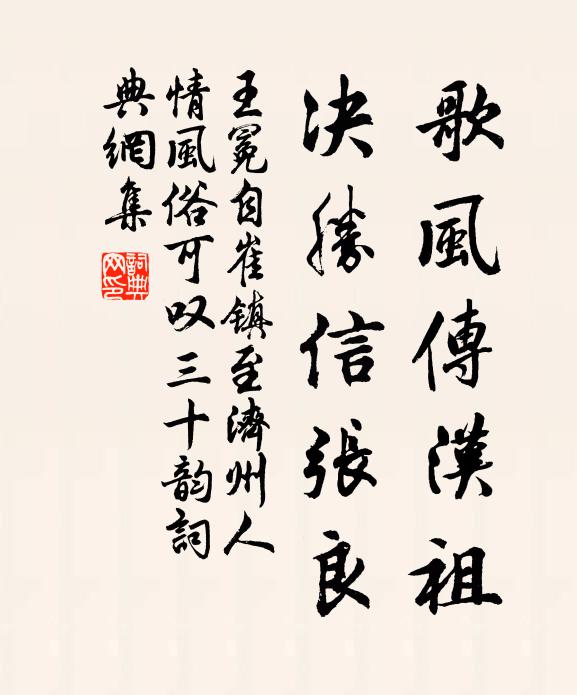 歌風傳漢祖
决勝信張良
王冕自崔镇至濟州人
情風俗可叹三十韵詞
典網集
詞典网印